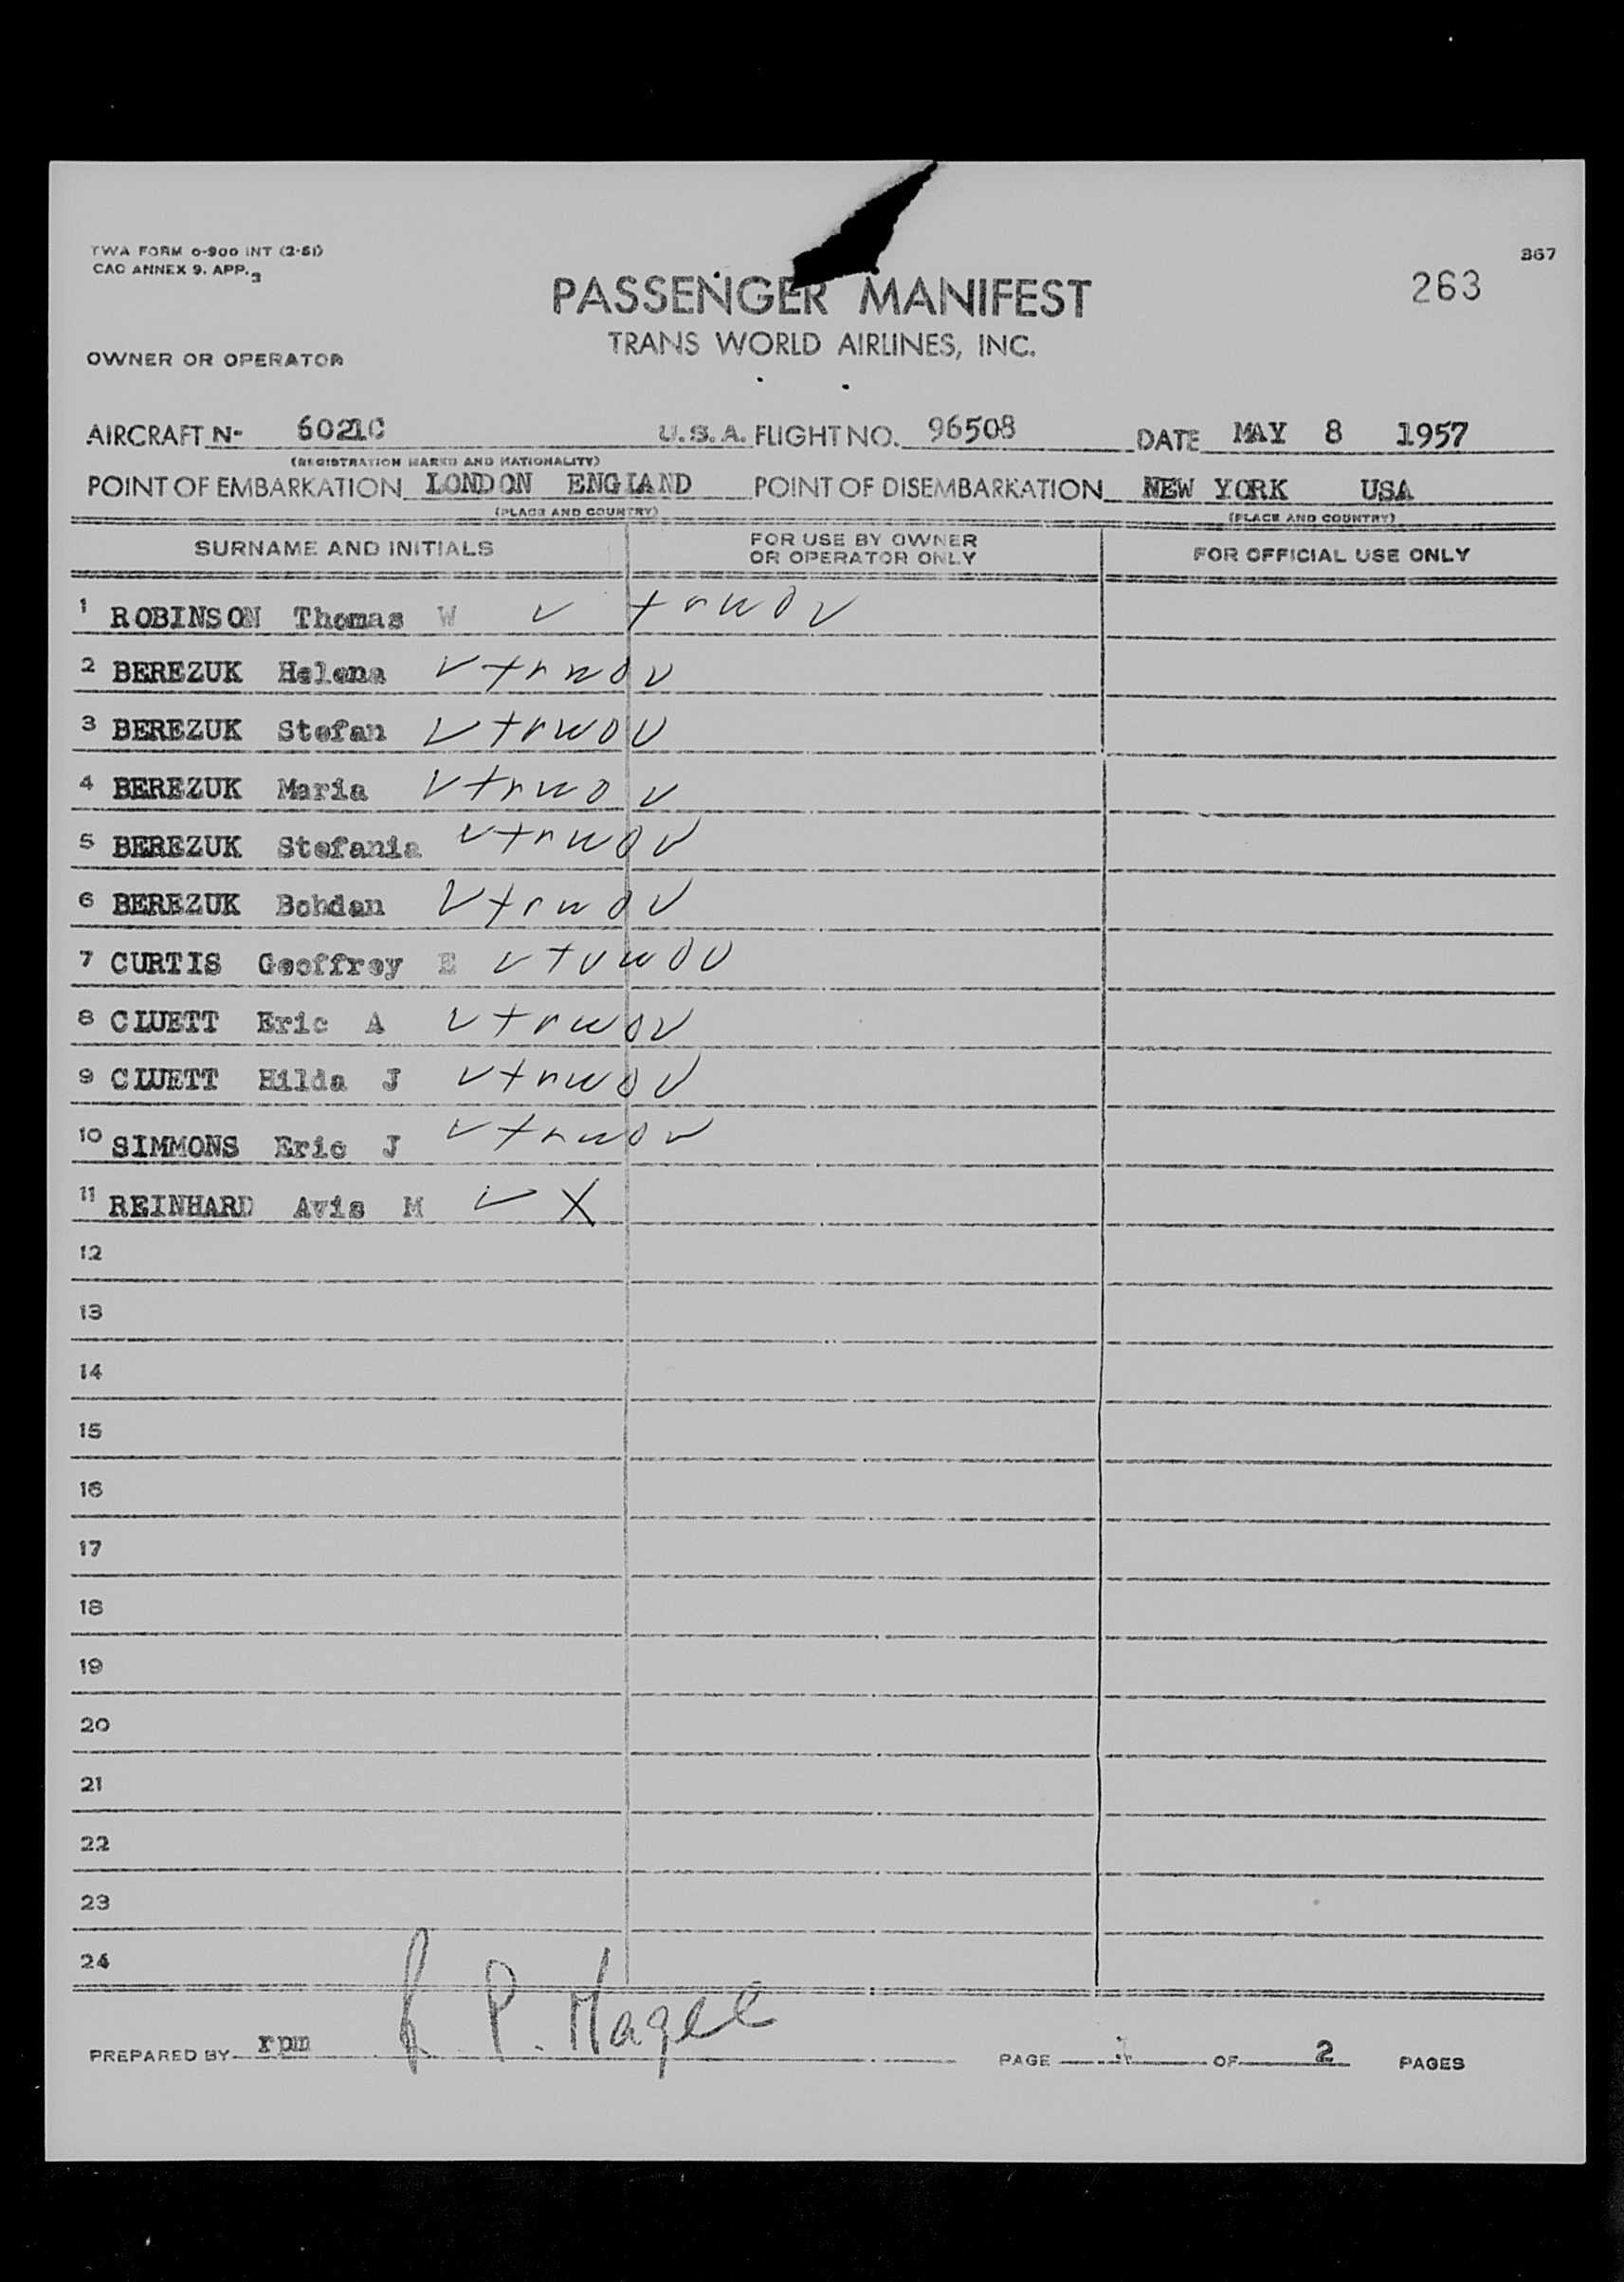 TWA FORM 0-900 INT (2-51)
CAO ANNEX 9. APP. 3
367
263
PASSENGER MANIFEST
TRANS WORLD AIRLINES, INC.
OWNER OR OPERATOR
AIRCRAFT N- 6021C U.S.A. FLIGHT NO. 96508 DATE MAY 8 1957
(REGISTRATION MARKS AND NATIONALITY)
POINT OF EMBARKATION LONDON ENGLAND POINT OF DISEMBARKATION NEW YORK USA
(PLACE AND COUNTRY) (PLACE AND COUNTRY)
SURNAME AND INITIALS FOR USE BY OWNER OR OPERATOR ONLY FOR OFFICIAL USE ONLY
1 ROBINSON Thomas W
2 BEREZUK Helena
3 BEREZUK Stefan
4 BEREZUK Maria
5 BEREZUK Stefania
6 BEREZUK Bohdan
7 CURTIS Geoffrey E
8 CLUETT Eric A
9 CLUETT Hilda J
10 SIMMONS Eric J
11 REINHARD Avis M X
12
13
14
15
16
17
18
19
20
21
22
23
24
PREPARED BY rpm R P. Magee PAGE 1 OF 2 PAGES